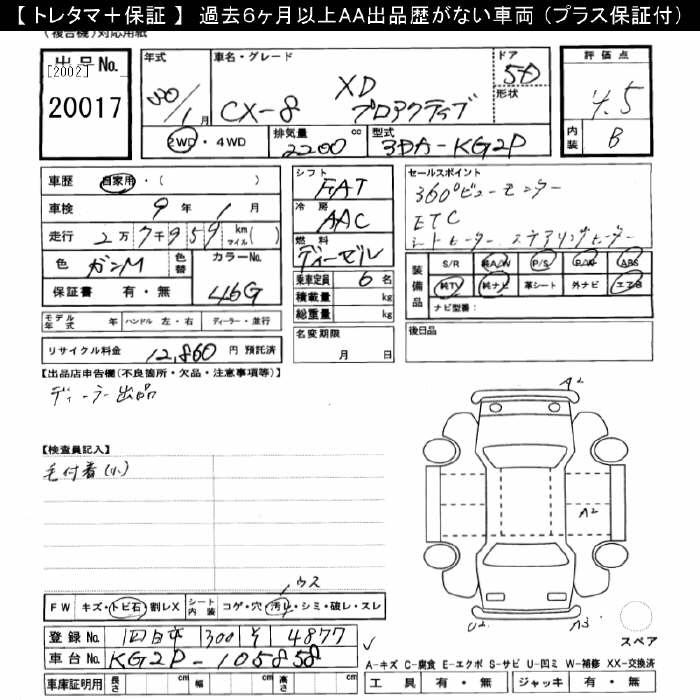 【 トレタマ＋保証 】 過去６ヶ月以上ＡＡ出品歴がない車両（プラス保証付）
(複合機)対応用紙
出品No.
[2002]
20017
年式
30/1月
車名・グレード
CX-8
XD プロアクティブ
ドア
5D
形状
2WD・4WD
排気量
2200 cc
型式
3DA-KG2P
評価点
4.5
内装
B
車歴 自家用・( )
車検 9年 1月
走行 2万7千959 km マイル( )
色 ガンM
色替
カラーNo.
46G
保証書 有・無
シフト
FAT
冷房
AAC
燃料
ディーゼル
乗車定員 6名
積載量 kg
総重量 kg
セールスポイント
360°ビューモニター
ETC
シートヒーター ステアリングヒーター
装備品
S/R 純A/W P/S P/W ABS
純TV 純ナビ 革シート 外ナビ エアB
ナビ型番:
モデル年式 年 ハンドル 左・右 ディーラー・並行
名変期限
月 日
後日品
リサイクル料金 12,860 円 預託済
【出品店申告欄(不良箇所・欠品・注意事項等)】
ディーラー出品
A2
【検査員記入】
毛付着(小)
A2
ウス
FW キズ・トビ石・割レX
シート内装 コゲ・穴・汚レ・シミ・破レ・スレ
U2
A3
スペア
登録No. 四日市 300 そ 4877
車台No. KG2P-105858
車庫証明用 長さ cm 幅 cm 高さ cm
A-キズ C-腐食 E-エクボ S-サビ U-凹ミ W-補修 XX-交換済
工具 有・無 ジャッキ 有・無